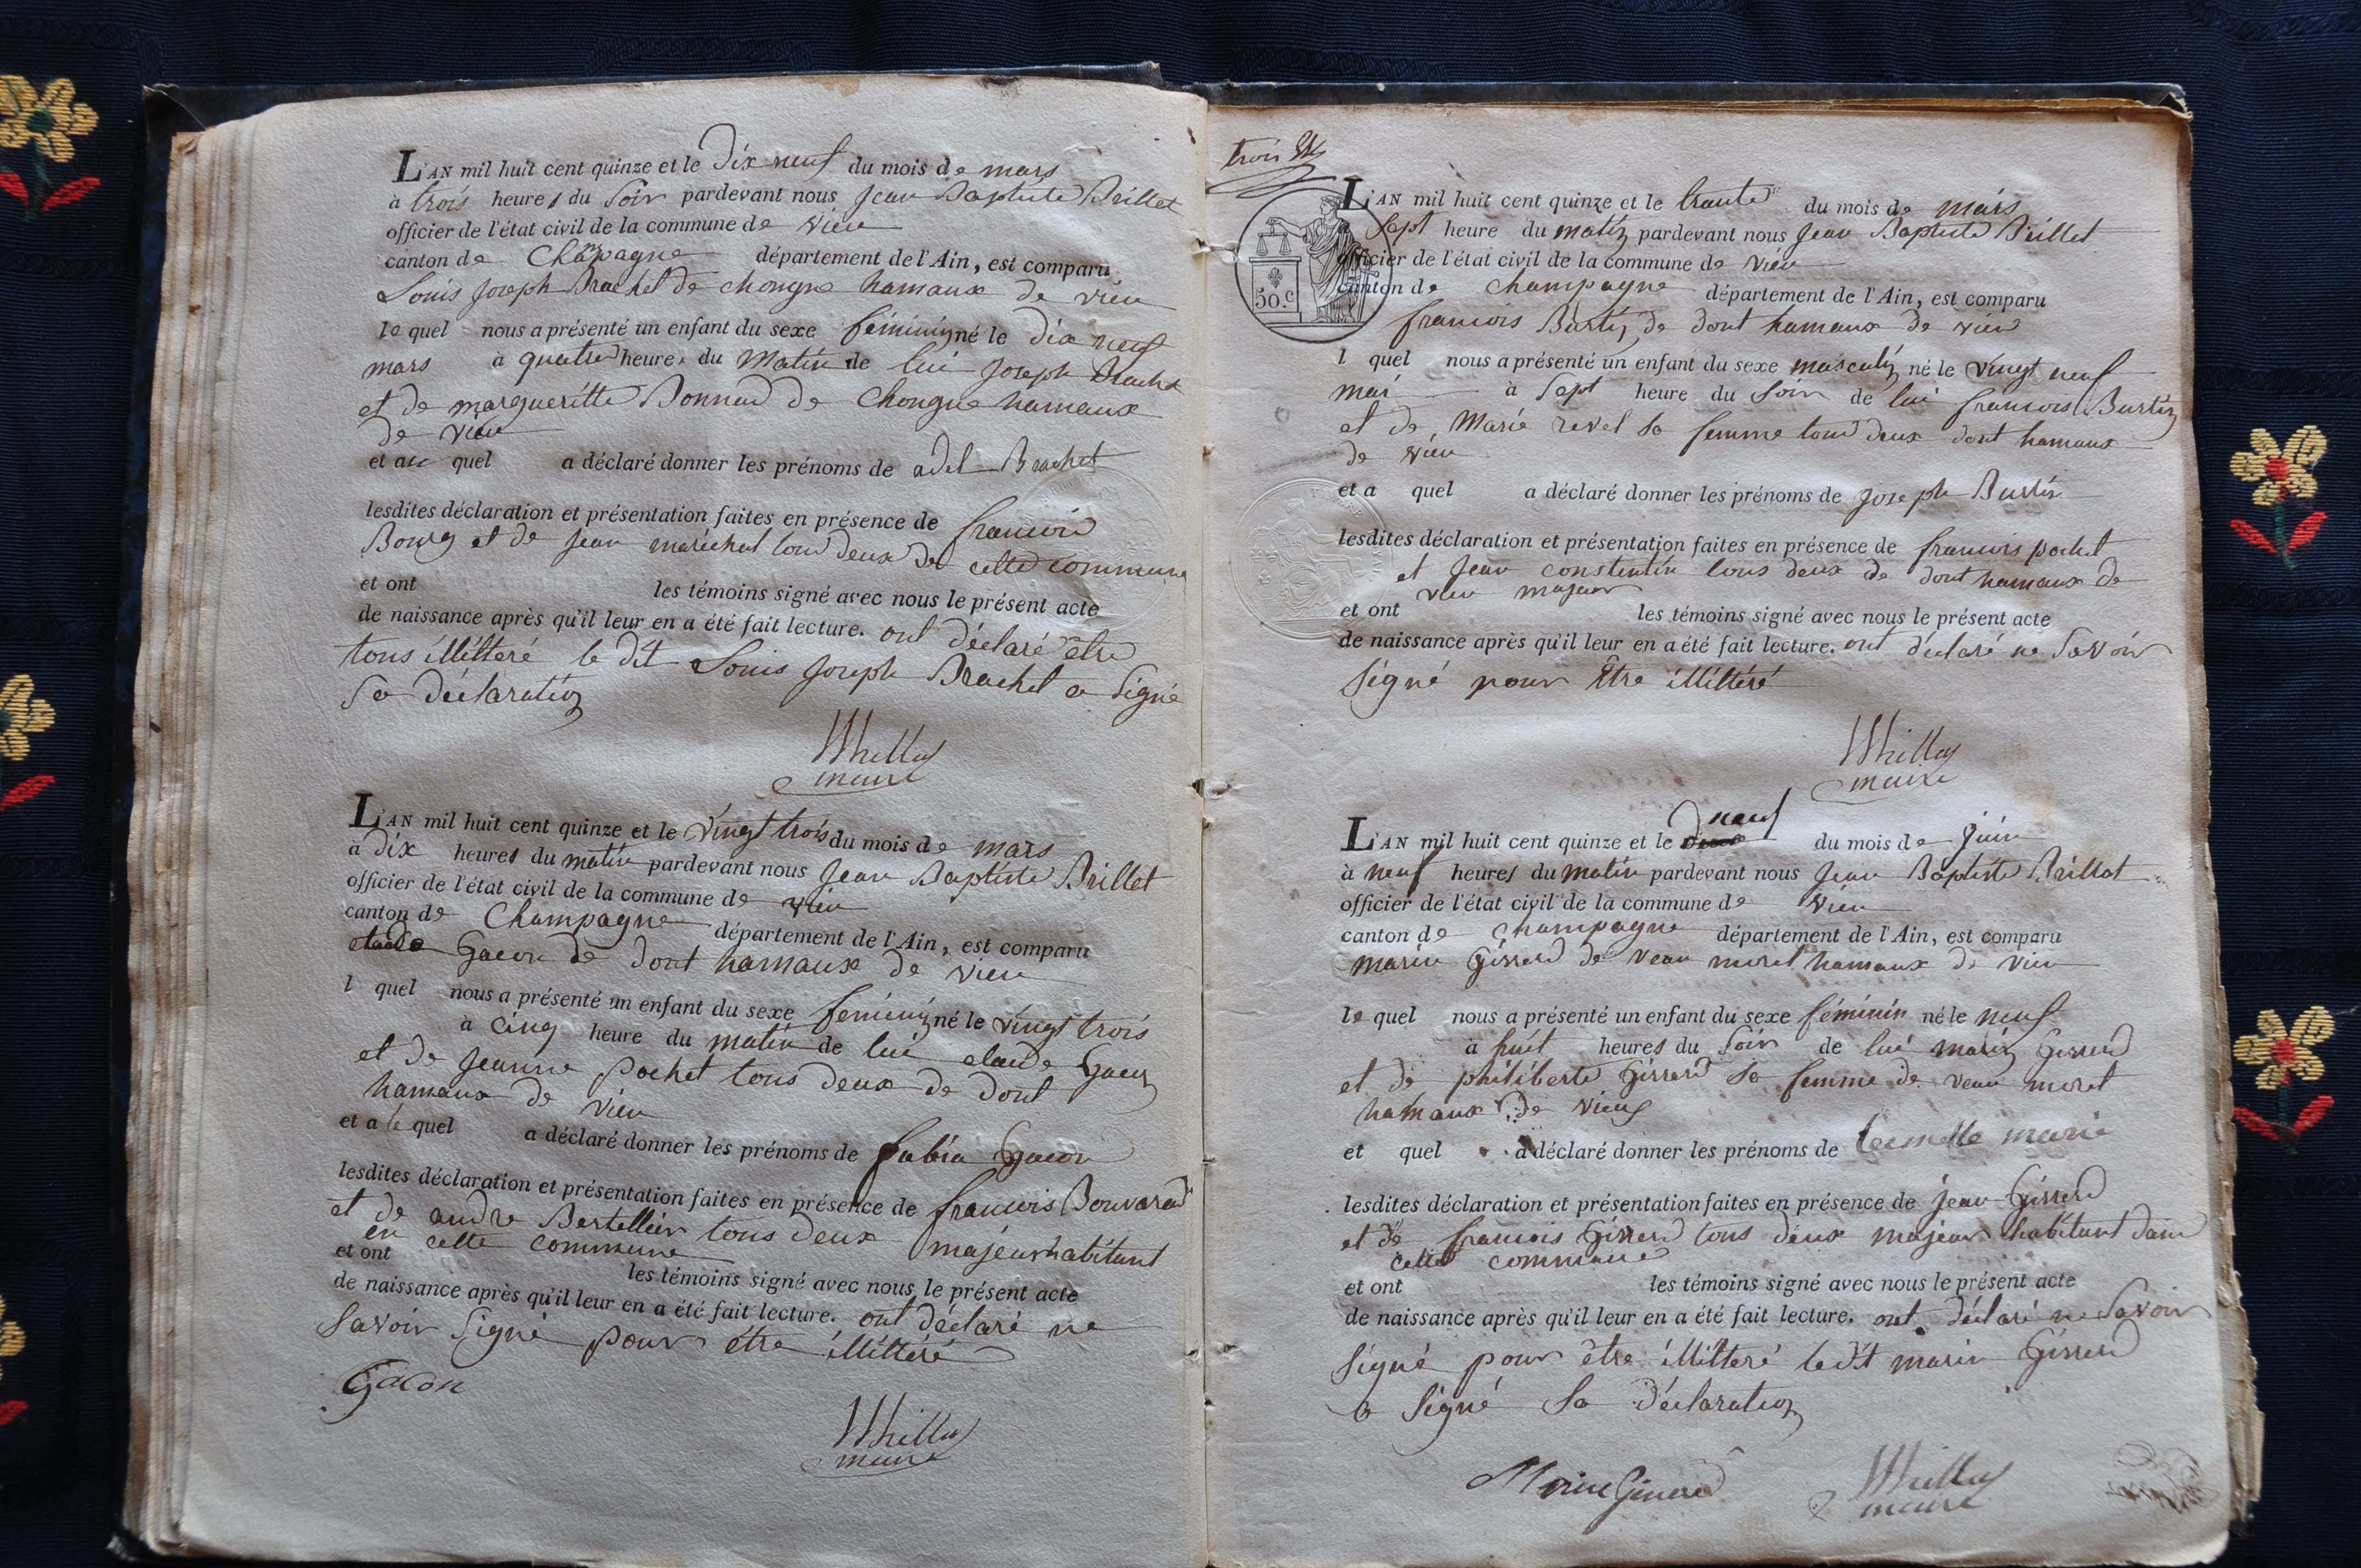 L'AN mil huit cent quinze et le Dix neuf du mois de mars
à trois heures du Soir pardevant nous Jean Baptiste Brillet
officier de l'état civil de la commune de vieu
canton de Champagne département de l'Ain, est comparu
Louis Joseph Brachet de chongne hamaux de vieu
le quel nous a présenté un enfant du sexe féminin né le dix neuf
mars à quatre heures du Matin de lui Joseph Brachet
et de margueritte Bonnard de Chongne hamaux
de vieu
et au quel a déclaré donner les prénoms de adel Brachet
lesdites déclaration et présentation faites en présence de francois
Bourg et de Jean maréchal tous deux de cette commune
et ont les témoins signé avec nous le présent acte
de naissance après qu'il leur en a été fait lecture. ont déclaré etre
tous illitteré le dit Louis Joseph Brachet a Signé
Sa déclaration
maire
L'AN mil huit cent quinze et le vingt trois du mois de mars
à dix heures du matin pardevant nous Jean Baptiste Brillet
officier de l'état civil de la commune de vieu
canton de Champagne département de l'Ain, est comparu
claude Gacon de dont hamaux de vieu
l quel nous a présenté un enfant du sexe féminin né le vingt trois
à cinq heure du matin de lui claude Gacon
et de Jeanne pochet tous deux de dont
hamaux de vieu
et a le quel a déclaré donner les prénoms de fabia Gacon
lesdites déclaration et présentation faites en présence de francois Bouvard
et de andre Bertellier tous deux majeur habitant
en cette commune
et ont les témoins signé avec nous le présent acte
de naissance après qu'il leur en a été fait lecture. ont déclaré ne
Savoir Signé pour être illitteré
Gacon
maire
trois
50.c
L'AN mil huit cent quinze et le trante du mois de mars
a Sept heure du matin pardevant nous Jean Baptiste Brillet
officier de l'état civil de la commune de vieu
canton de champagne département de l'Ain, est comparu
francois Burtin de dont hamaux de vieu
l quel nous a présenté un enfant du sexe masculin né le vingt neuf
mai à Sept heure du Soir de lui francois Burtin
et de Marie revel sa femme tous deux dont hamaux
de vieu
et a quel a déclaré donner les prénoms de Joseph Burtin
lesdites déclaration et présentation faites en présence de francois pochet
et Jean constentin tous deux de dont hamaux de
vieu majeur
et ont les témoins signé avec nous le présent acte
de naissance après qu'il leur en a été fait lecture. ont déclaré ne Savoir
Signé pour Être illitteré
maire
neuf
L'AN mil huit cent quinze et le du mois de juin
à neuf heures du matin pardevant nous Jean Baptiste Brillat
officier de l'état civil de la commune de vieu
canton de champagne département de l'Ain, est comparu
marin Girrerd de veau moret hamaux de vieu
le quel nous a présenté un enfant du sexe féminin né le neuf
à huit heures du Soir de lui marin Girrerd
et de philiberte Girrerd sa femme de veau moret
hamaux de vieu
et quel a déclaré donner les prénoms de marie
lesdites déclaration et présentation faites en présence de jean Girrerd
et de francois Girrerd tous deux majeur habitant dans
cette commune
et ont les témoins signé avec nous le présent acte
de naissance après qu'il leur en a été fait lecture. ont déclaré ne Savoir
Signé pour être illitteré ledit marin Girrerd
a Signé Sa déclaration
maire